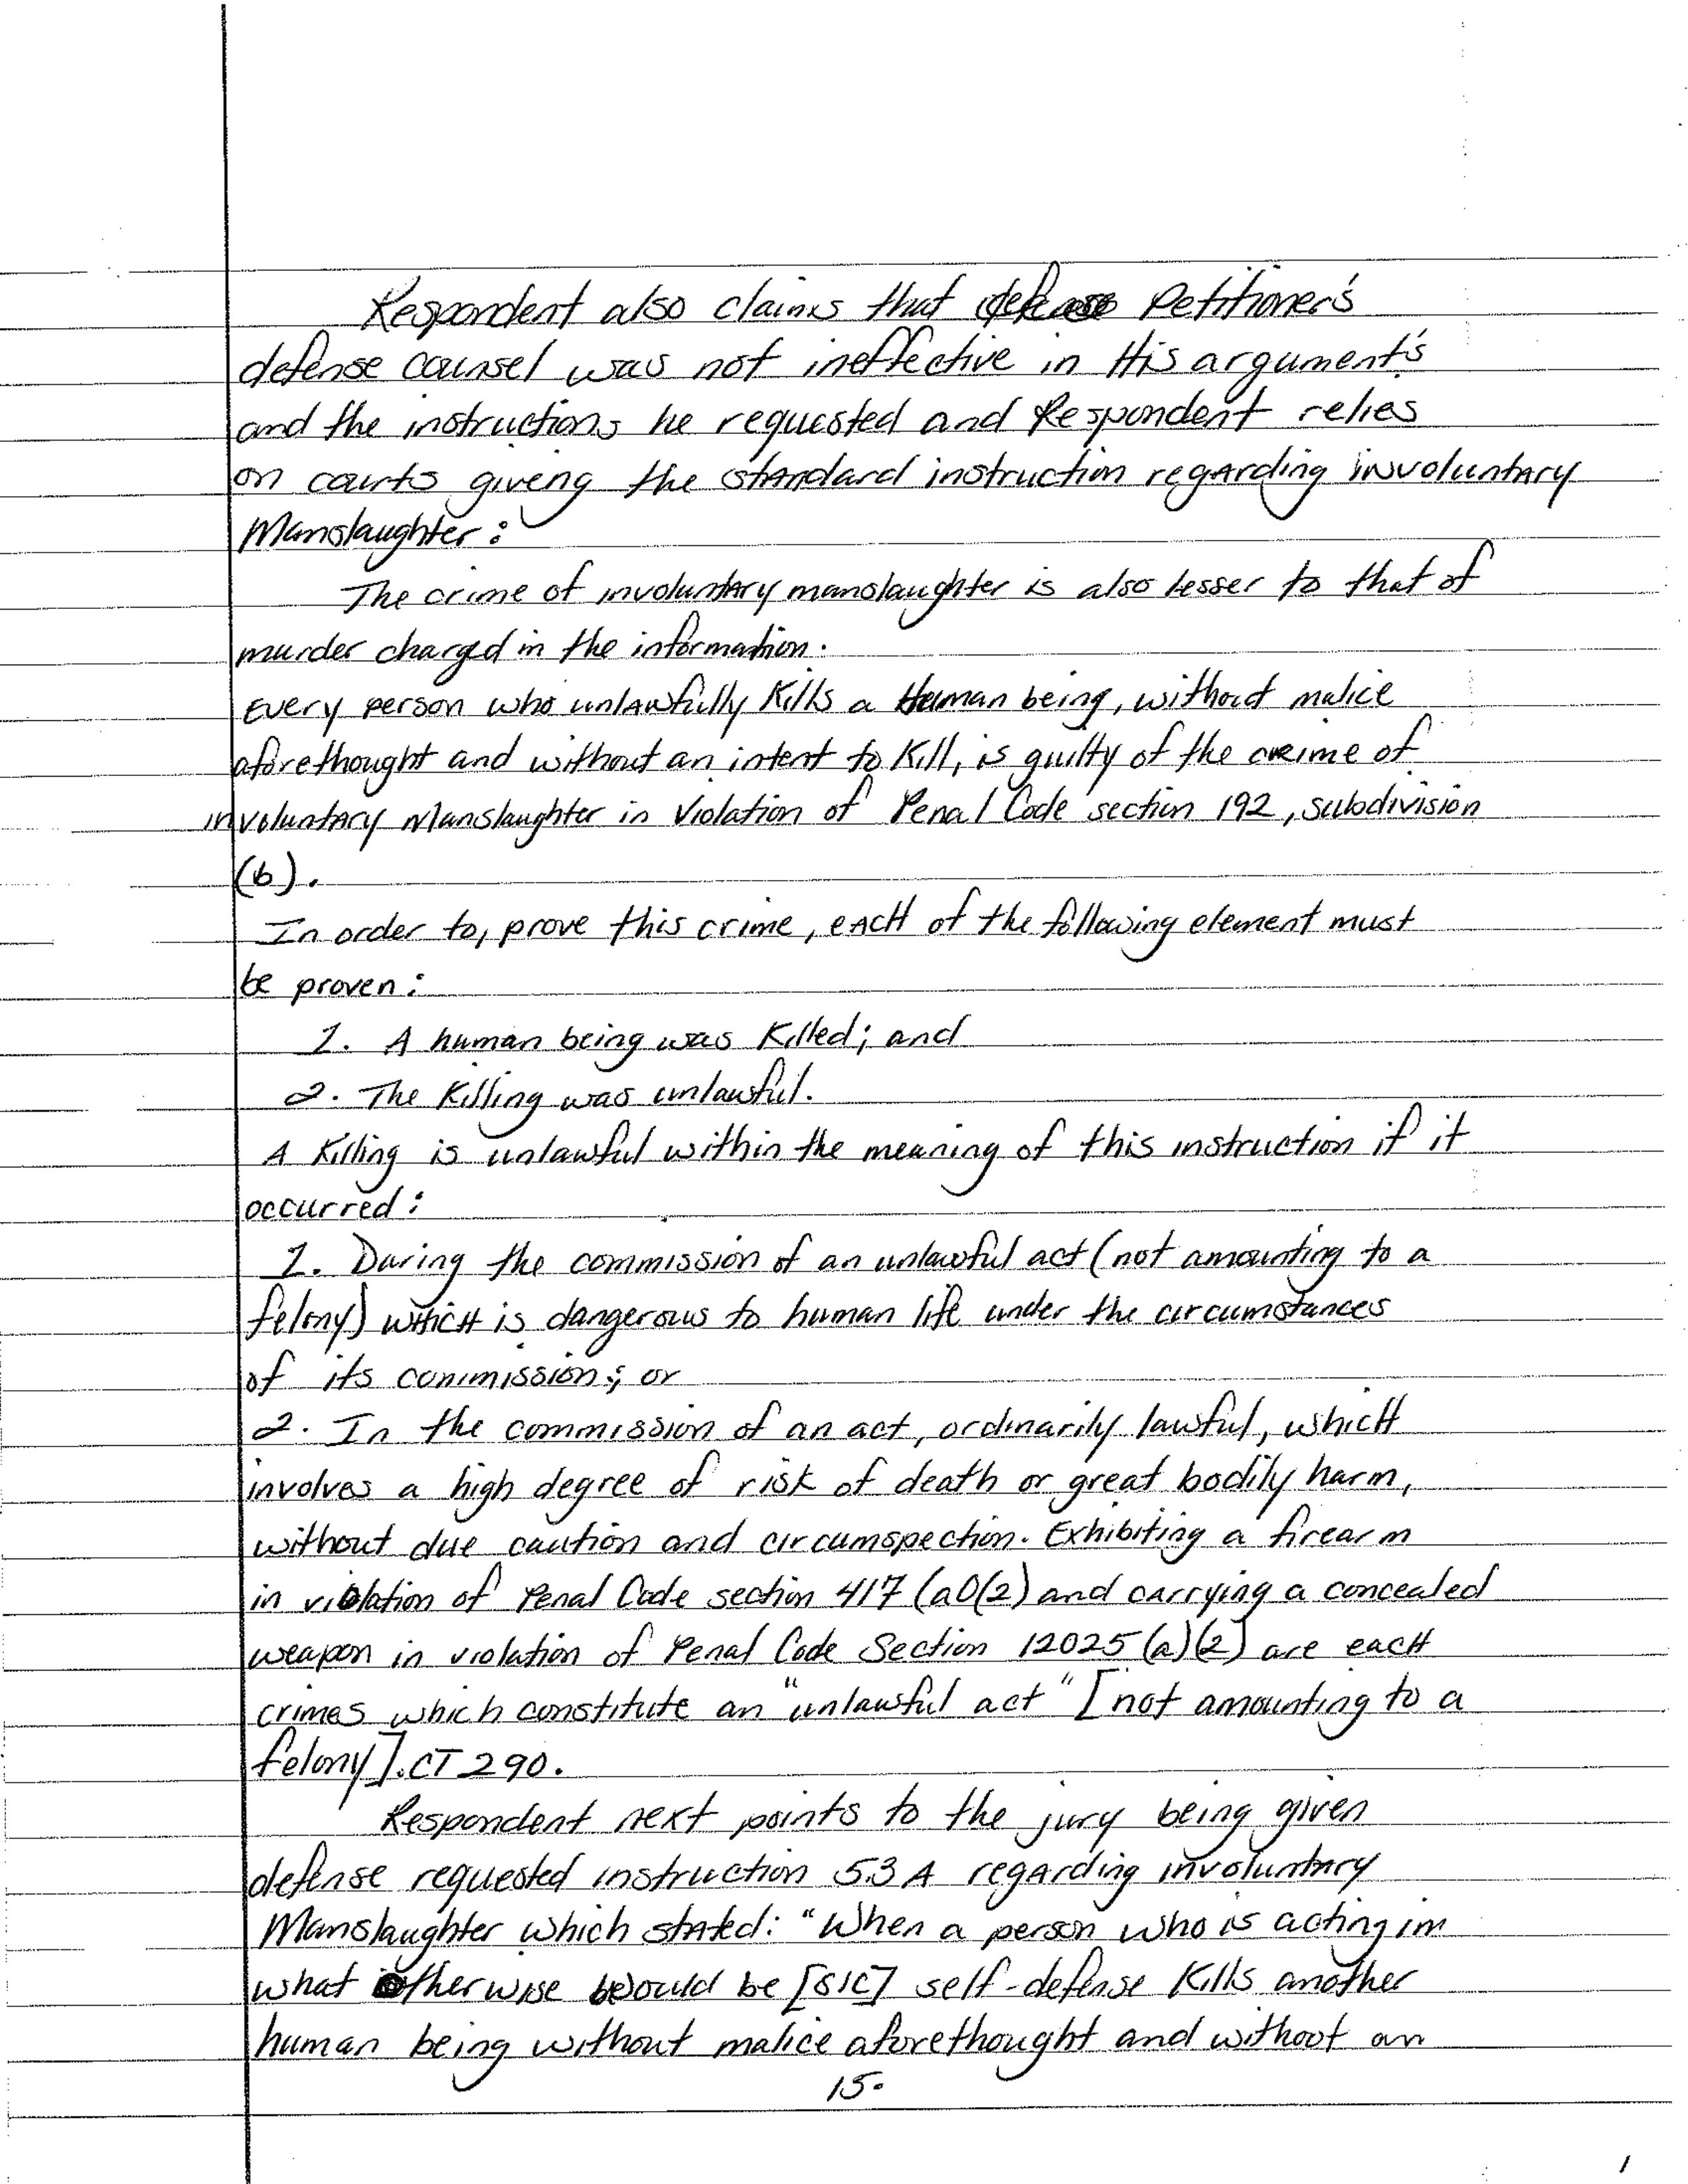 Respondent also claims that defense Petitioner's
defense counsel was not ineffective in His argument's
and the instructions he requested and Respondent relies
on courts giveng the standard instruction regarding involuntary
Manslaughter:
The crime of involuntary manslaughter is also lesser to that of
murder charged in the information.
Every person who unlawfully kills a Human being, without malice
aforethought and without an intent to kill, is guilty of the crime of
involuntary Manslaughter in violation of Penal Code section 192, subdivision
(b).
In order to, prove this crime, eacH of the following element must
be proven:
1. A human being was killed; and
2. The killing was unlawful.
A killing is unlawful within the meaning of this instruction if it
occurred:
1. During the commission of an unlawful act (not amounting to a
felony) whicH is dangerous to human life under the circumstances
of its commission; or
2. In the commission of an act, ordinarily lawful, whicH
involves a high degree of risk of death or great bodily harm,
without due caution and circumspection. Exhibiting a firearm
in violation of Penal Code section 417 (a0(2) and carrying a concealed
weapon in violation of Penal Code Section 12025 (a)(2) are eacH
crimes which constitute an "unlawful act" [not amounting to a
felony]. CT 290.
Respondent next points to the jury being given
defense requested instruction 5.3A regarding involuntary
Manslaughter which stated: "When a person who is acting im
what otherwise would be [SIC] self-defense kills another
human being without malice aforethought and without an
15.